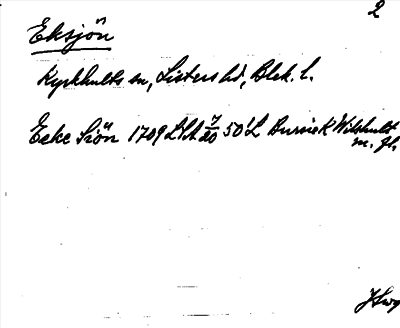 2
Eksjön
Kyrkhults sn, Listers hd, Blek. l.
Eeke Siön 1709 LSA 7/20 50'L Bursiek Wilshult
m. fl.